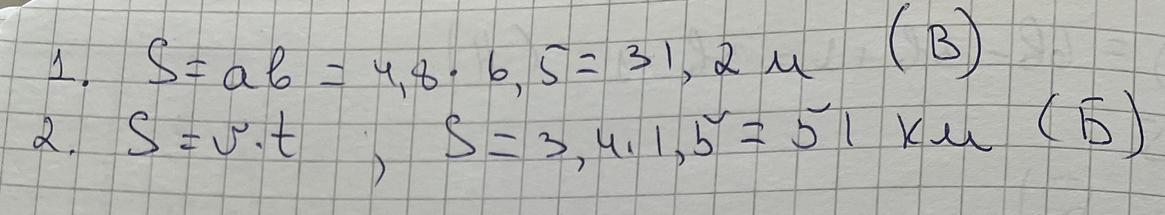 1. S = ab = 4,8 · 6,5 = 31,2 м (В)
2. S = v · t ; S = 3,4 · 1,5 = 51 км (Б)